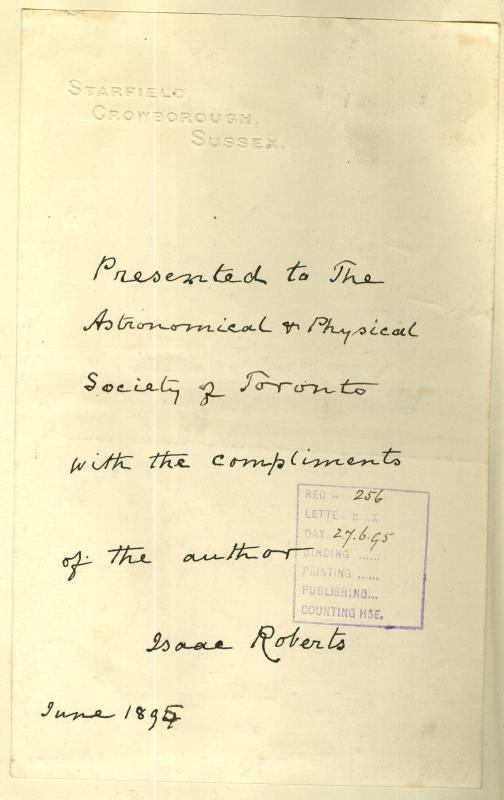 STARFIELD,
CROWBOROUGH.
SUSSEX.
Presented to The
Astronomical & Physical
Society of Toronto
with the compliments
of the author
REG No 256
LETTER BOOK
DAY 27.6.95
BINDING ......
PRINTING ......
PUBLISHING...
COUNTING HSE.
Isaac Roberts
June 1895